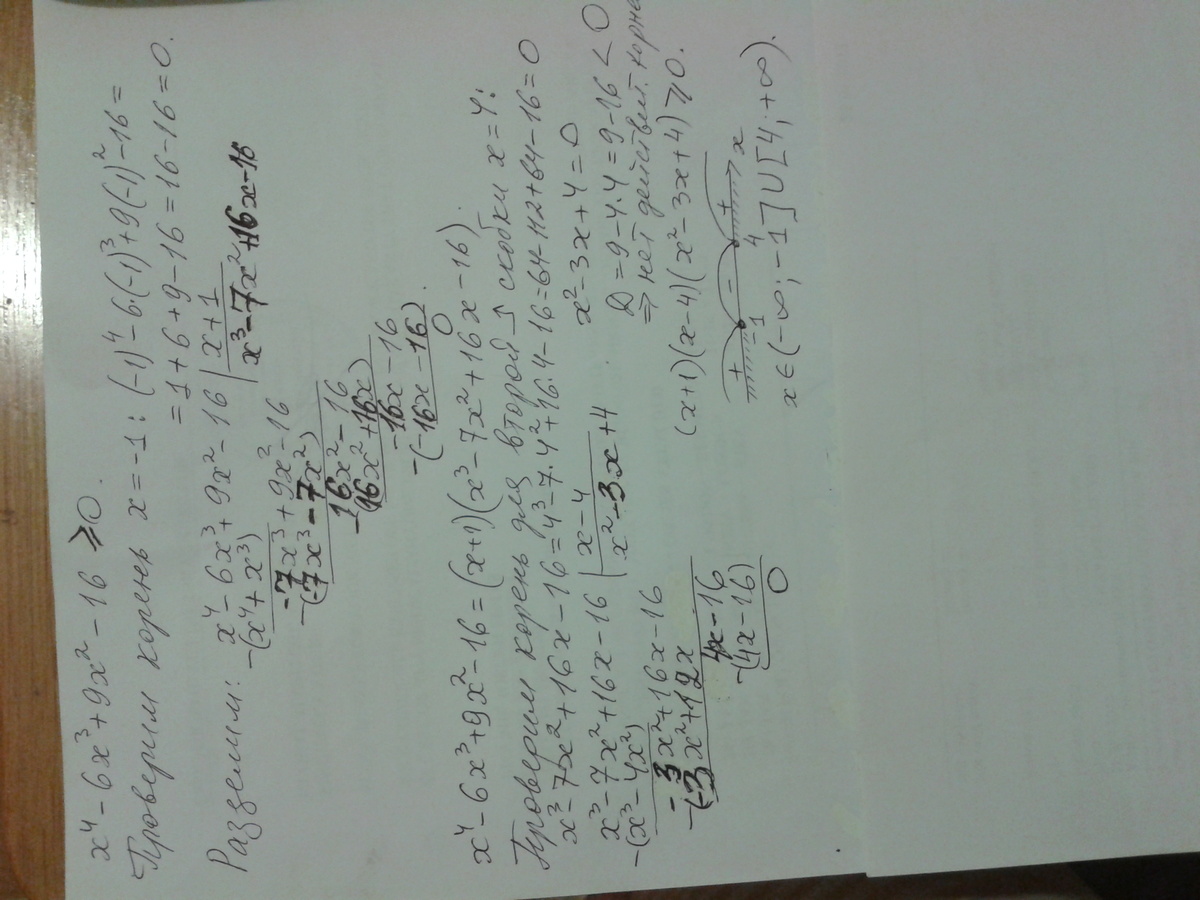 x⁴-6x³+9x²-16≥0.
Проверим корень x=-1: (-1)⁴-6·(-1)³+9(-1)²-16=
=1+6+9-16=16-16=0.
Разделим: x⁴-6x³+9x²-16 | x+1
-(x⁴+x³) x³-7x²+16x-16
-7x³+9x²-16
-(-7x³-7x²)
16x²-16
-(16x²+16x)
-16x-16
-(-16x-16)
0
x⁴-6x³+9x²-16=(x+1)(x³-7x²+16x-16).
Проверим корень для второй скобки x=4:
x³-7x²+16x-16=4³-7·4²+16·4-16=64-112+64-16=0
x³-7x²+16x-16 | x-4
-(x³-4x²) x²-3x+4
-3x²+16x-16
-(-3x²+12x
4x-16
-(4x-16)
0
x²-3x+4=0
D=9-4·4=9-16<0
⇒ нет действит. корне
(x+1)(x-4)(x²-3x+4)≥0.
+ - +
-1 4 x
x∈(-∞;-1]∪[4;+∞).